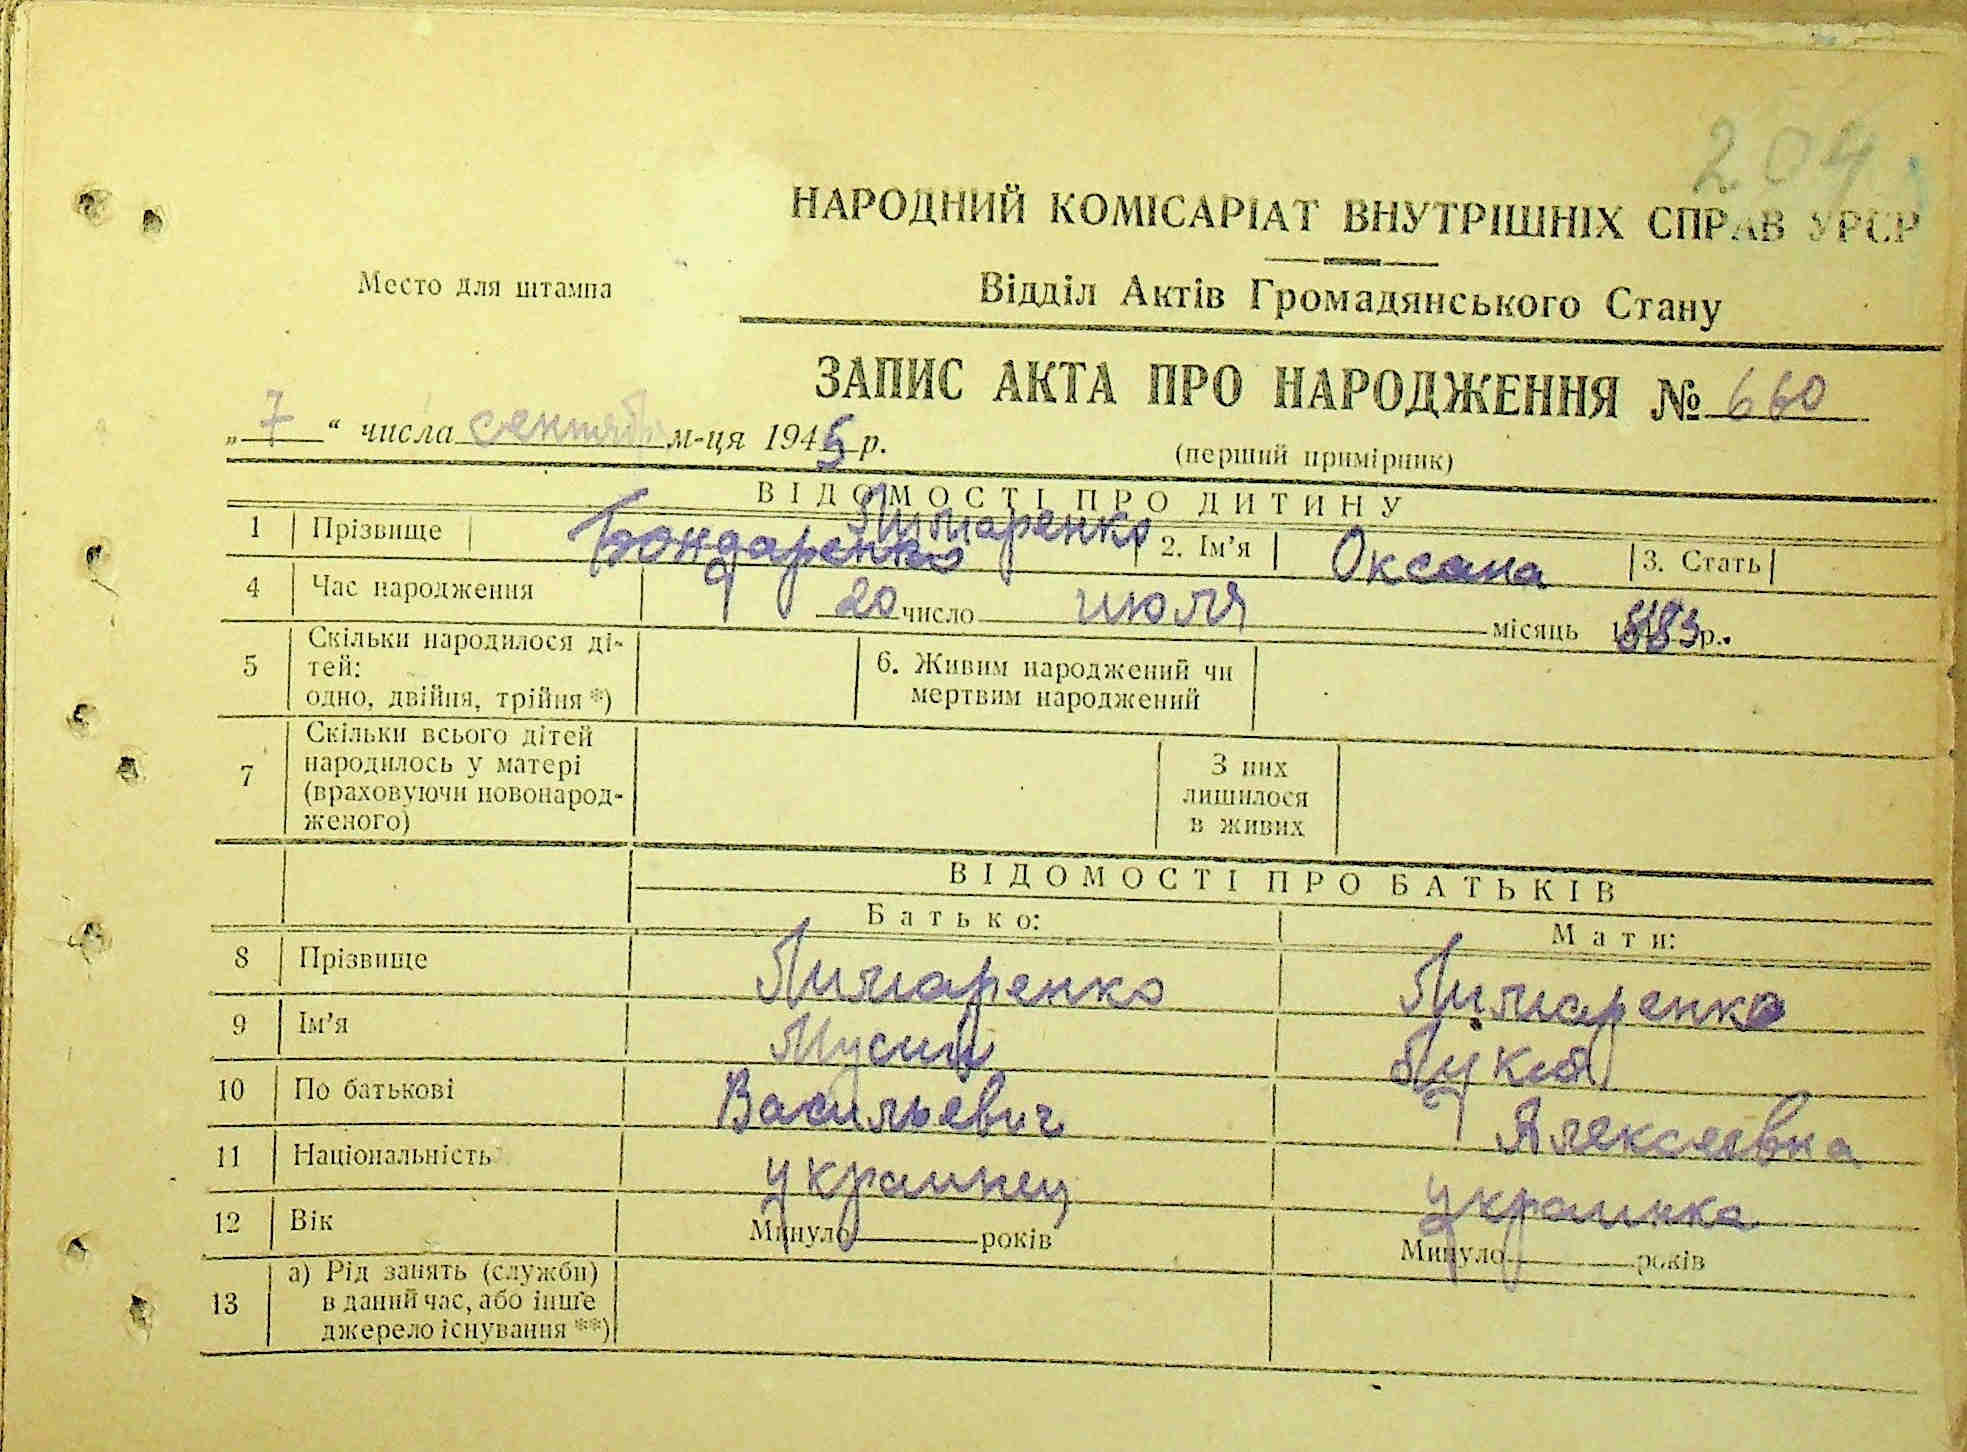 204
НАРОДНИЙ КОМІСАРІАТ ВНУТРІШНІХ СПРАВ УРСР
Место для штампа
Відділ Актів Громадянського Стану
ЗАПИС АКТА ПРО НАРОДЖЕННЯ № 660
„ 7 “ числа сентября м-ця 1945 р.
(перший примірник)
ВІДОМОСТІ ПРО ДИТИНУ
1 Прізвище Бондаренко Пимаренко 2. Ім'я Оксана 3. Стать
4 Час народження 20 число июля місяць 1883 р.
5 Скільки народилося ді-
тей:
одно, двійня, трійня *)
6. Живим народжений чи
мертвим народжений
7 Скільки всього дітей
народилось у матері
(враховуючи новонарод-
женого)
З них
лишилося
в живих
ВІДОМОСТІ ПРО БАТЬКІВ
Батько: Мати:
8 Прізвище Пимаренко Пимаренко
9 Ім'я Мусий
10 По батькові Васильевич Алексеевна
11 Національність украинец украинка
12 Вік Минуло років Минуло років
13 а) Рід занять (служби)
в даний час, або інше
джерело існування **)